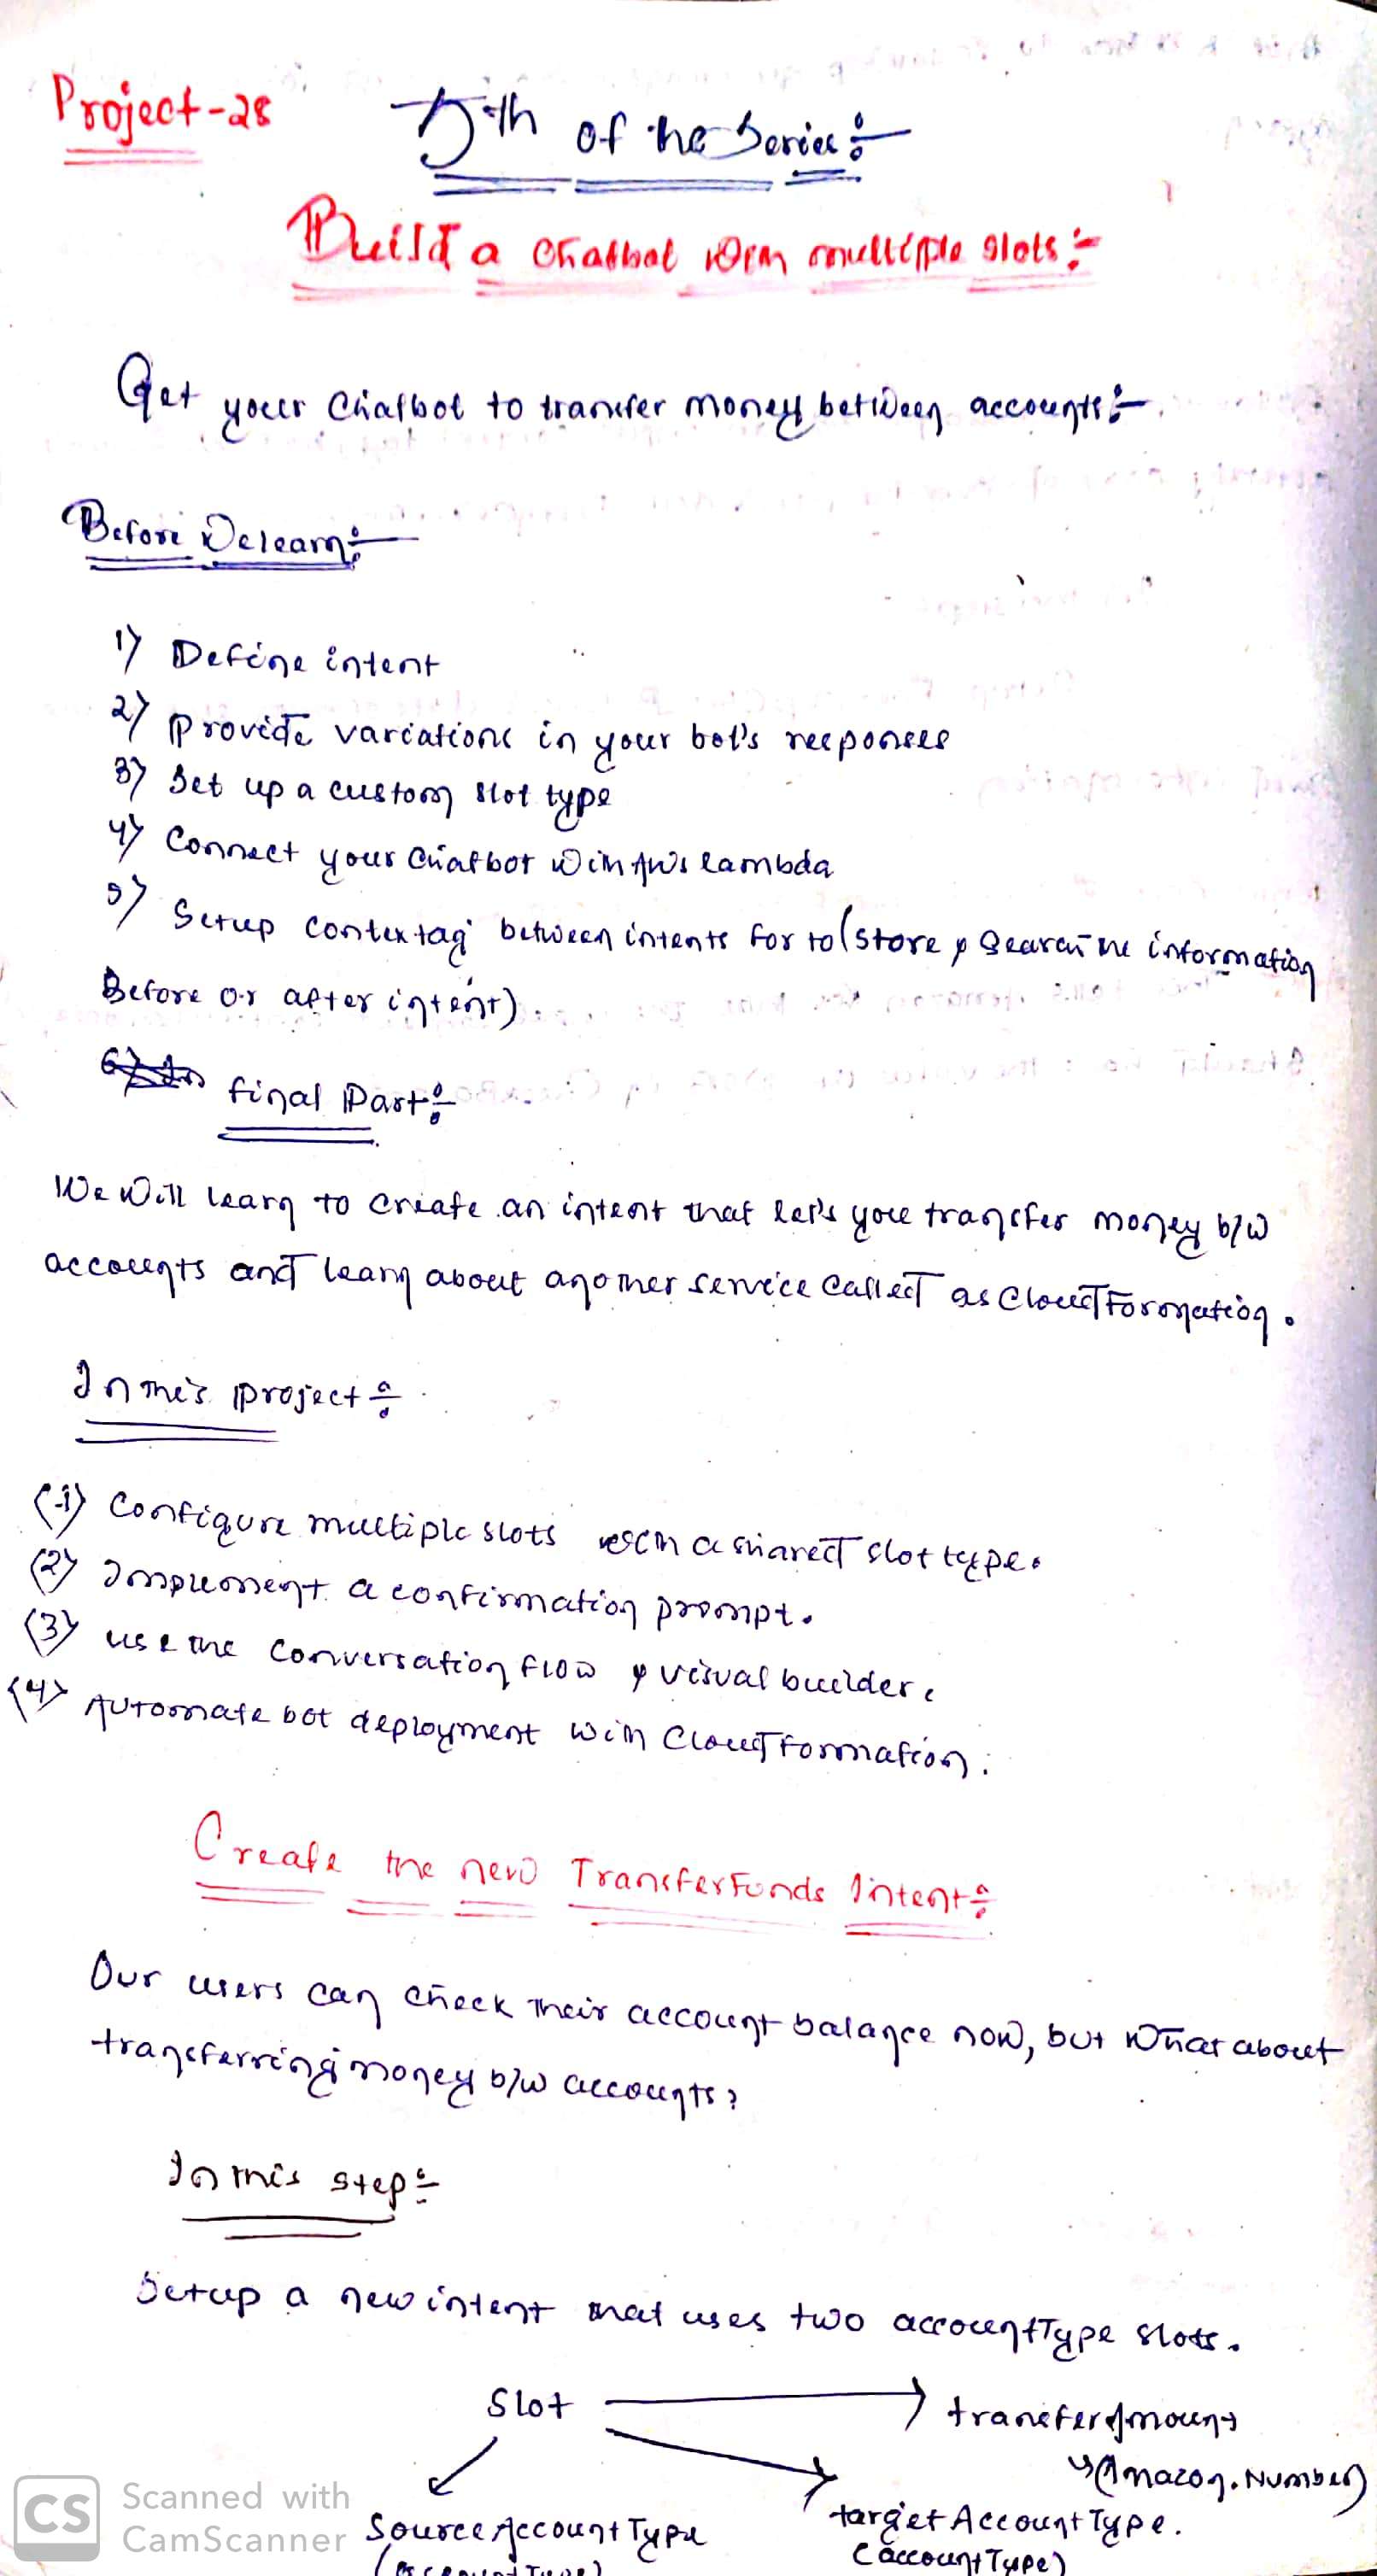 Project-28
5th of the Series:-
Build a Chatbot with multiple slots:-
Get your Chatbot to transfer money between accounts:-
Before We learn:-
1) Define intent
2) Provide variations in your bot's responses
3) Set up a custom slot type
4) Connect your Chatbot with AWS lambda
5) Setup context tag between intents for to (store & Search the information
Before or after intent).
final Part:-
We will learn to create an intent that let's you transfer money b/w
accounts and learn about another service called as CloudFormation.
In this project:-
(1) Configure multiple slots with a shared slot type.
(2) Implement a confirmation prompt.
(3) use the Conversation flow & visual builder.
(4) Automate bot deployment with CloudFormation.
Create the new TransferFunds Intent:-
Our users can check their account balance now, but what about
transferring money b/w accounts?
In this step:-
Setup a new intent that uses two accountType slots.
Slot
transferAmount
(Amazon.Number)
SourceAccountType
targetAccountType.
(accountType)
(accountType)
CS
Scanned with
CamScanner